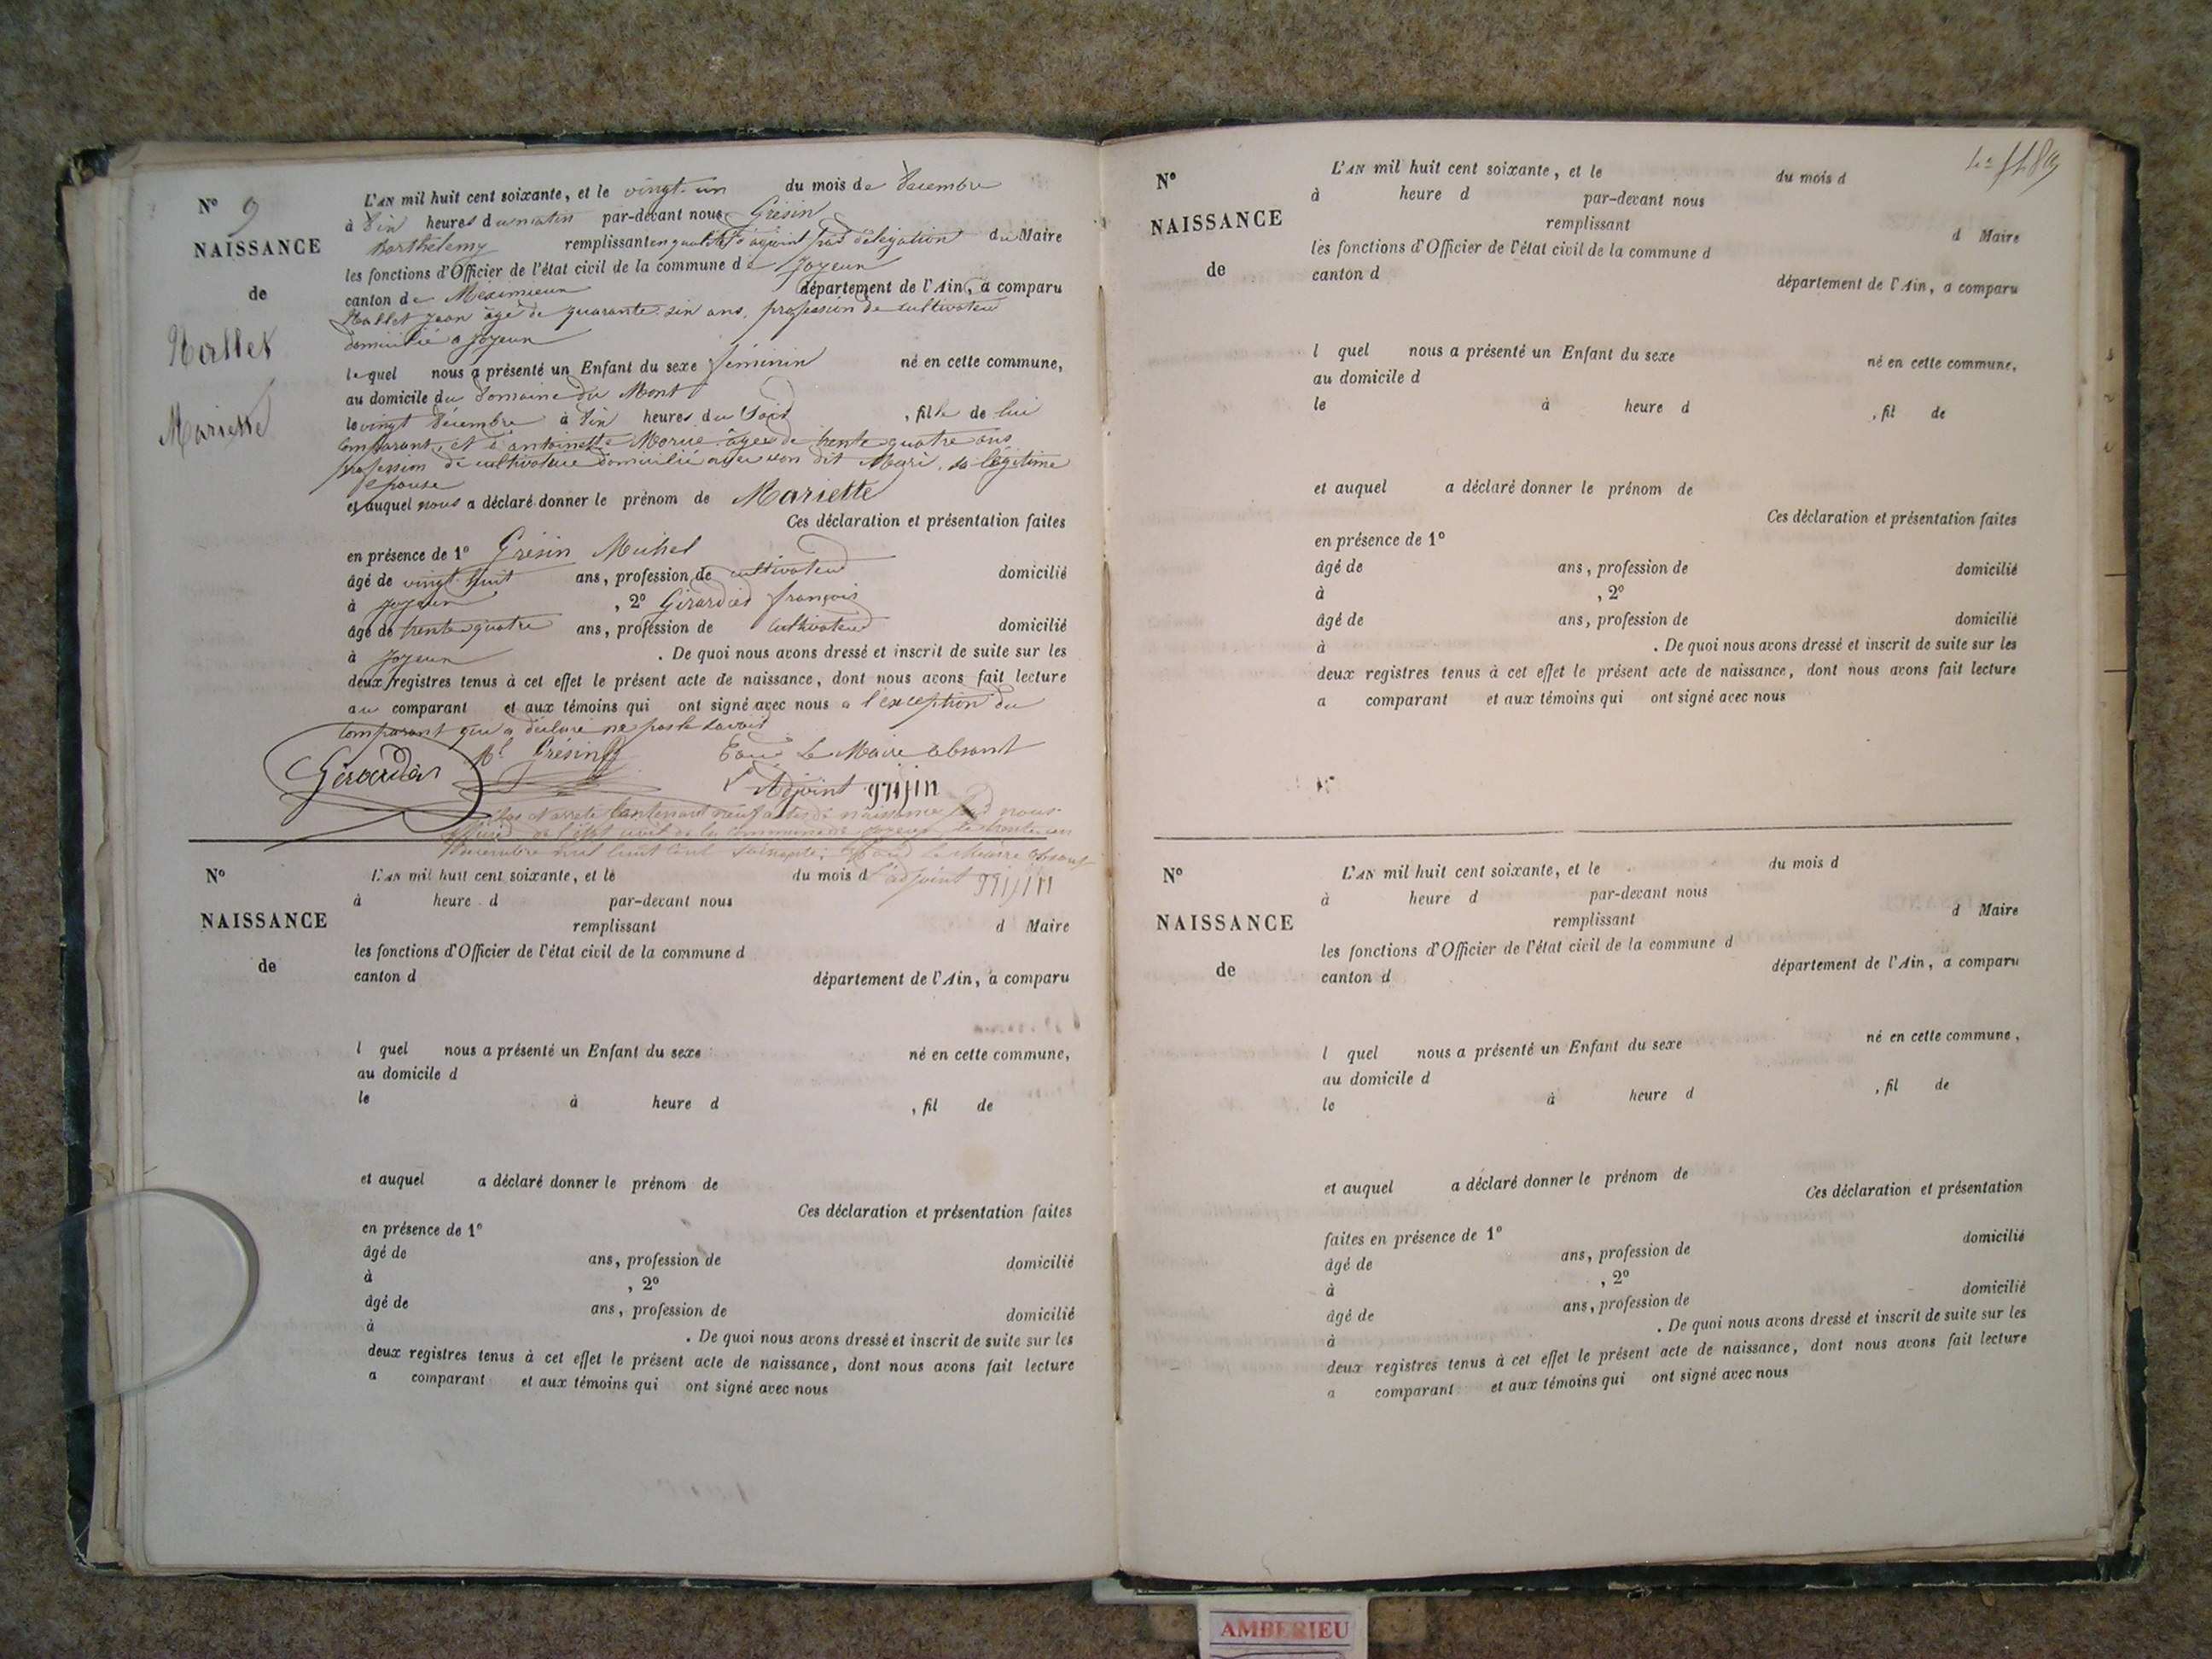 N° 9
NAISSANCE
de
Mariette
L'AN mil huit cent soixante, et le vingt-un du mois de Décembre
à dix heures du matin par-devant nous Grésin
Barthélemy remplissant en qualité d'adjoint par délégation du Maire
les fonctions d'Officier de l'état civil de la commune de Joyeux
canton de Méximieux département de l'Ain, a comparu
Jean âgé de quarante six ans, profession de cultivateur
domicilié a Joyeux
lequel nous a présenté un Enfant du sexe féminin né en cette commune,
au domicile du domaine du Mont
le vingt Décembre à dix heures du Soir, fille de lui
comparant, et d'antoinette âgée de trente quatre ans
profession de cultivateur domicilié avec son dit Mari, sa légitime
épouse
et auquel nous a déclaré donner le prénom de Mariette
Ces déclaration et présentation faites
en présence de 1° Grésin Michel
âgé de vingt huit ans, profession de cultivateur domicilié
à Joyeux, 2° Girardier françois
âgé de trente quatre ans, profession de cultivateur domicilié
à Joyeux. De quoi nous avons dressé et inscrit de suite sur les
deux registres tenus à cet effet le présent acte de naissance, dont nous avons fait lecture
au comparant et aux témoins qui ont signé avec nous a l'exception du
comparant qui a déclaré ne pas le savoir
Girardier Ml Grésin Pour Le Maire absent
L'Adjoint grésin
Clos et arrêté contenant neuf actes de naissance par nous
officier de l'état civil de la commune de Joyeux, le trente un
Décembre mil huit cent soixante. Pour le Maire absent
l'adjoint grésin
N°
NAISSANCE
de
L'AN mil huit cent soixante, et le du mois d
à heure d par-devant nous
remplissant d Maire
les fonctions d'Officier de l'état civil de la commune d
canton d département de l'Ain, a comparu
l quel nous a présenté un Enfant du sexe né en cette commune,
au domicile d
le à heure d , fil de
et auquel a déclaré donner le prénom de
Ces déclaration et présentation faites
en présence de 1°
âgé de ans, profession de domicilié
à , 2°
âgé de ans, profession de domicilié
à . De quoi nous avons dressé et inscrit de suite sur les
deux registres tenus à cet effet le présent acte de naissance, dont nous avons fait lecture
a comparant et aux témoins qui ont signé avec nous
N°
NAISSANCE
de
L'AN mil huit cent soixante, et le du mois d
à heure d par-devant nous
remplissant d Maire
les fonctions d'Officier de l'état civil de la commune d
canton d département de l'Ain, a comparu
l quel nous a présenté un Enfant du sexe né en cette commune,
au domicile d
le à heure d , fil de
et auquel a déclaré donner le prénom de
Ces déclaration et présentation faites
en présence de 1°
âgé de ans, profession de domicilié
à , 2°
âgé de ans, profession de domicilié
à . De quoi nous avons dressé et inscrit de suite sur les
deux registres tenus à cet effet le présent acte de naissance, dont nous avons fait lecture
a comparant et aux témoins qui ont signé avec nous
N°
NAISSANCE
de
L'AN mil huit cent soixante, et le du mois d
à heure d par-devant nous
remplissant d Maire
les fonctions d'Officier de l'état civil de la commune d
canton d département de l'Ain, a comparu
l quel nous a présenté un Enfant du sexe né en cette commune,
au domicile d
le à heure d , fil de
et auquel a déclaré donner le prénom de
Ces déclaration et présentation
faites en présence de 1° domicilié
âgé de ans, profession de
à , 2°
âgé de ans, profession de domicilié
à . De quoi nous avons dressé et inscrit de suite sur les
deux registres tenus à cet effet le présent acte de naissance, dont nous avons fait lecture
a comparant et aux témoins qui ont signé avec nous
AMBERIEU